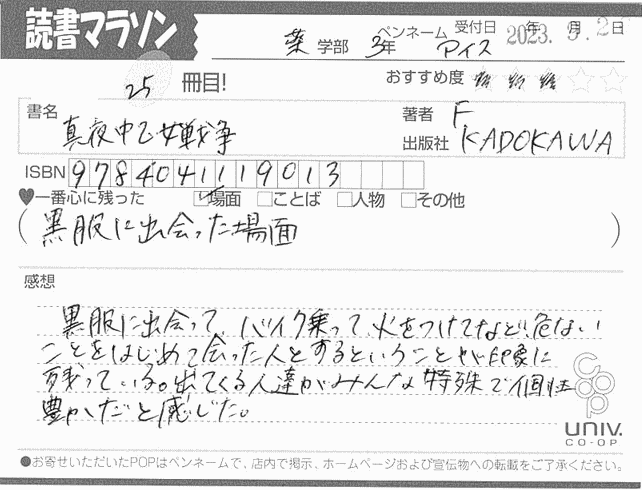 読書マラソン
薬 学部 3年 ペンネーム アイス 受付日 2023. 9. 2 年 月 日
25 冊目! おすすめ度 ☆☆☆☆☆
書名 真夜中乙女戦争 著者 F
出版社 KADOKAWA
ISBN 9784041119013
♥一番心に残った ☑場面 □ことば □人物 □その他
(黒服に出会った場面)
感想
黒服に出会って、バイク乗って、火をつけてなど、危ない
ことをはじめて会った人とするということが印象に
残っている。出てくる人達がみんな特殊で個性
豊かだと感じた。
co-op
UNIV.
CO-OP
●お寄せいただいたPOPはペンネームで、店内で掲示、ホームページおよび宣伝物への転載をご了承ください。